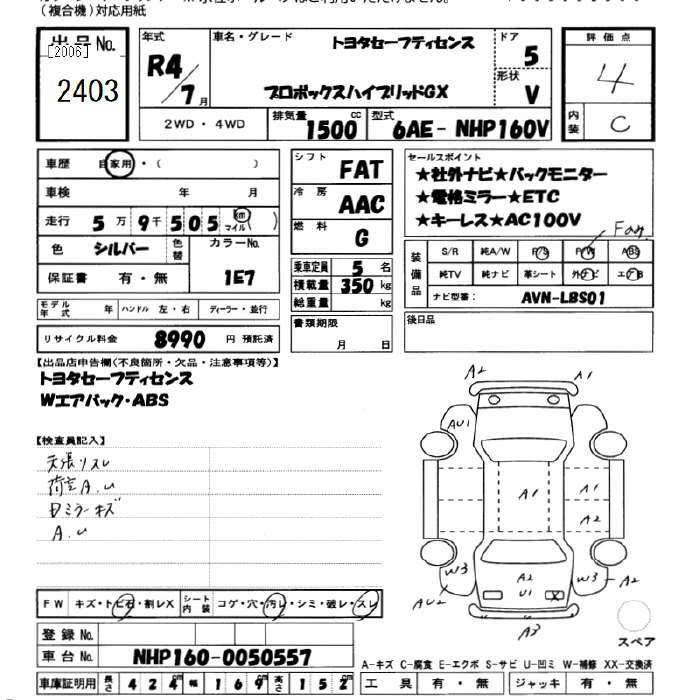 (複合機)対応用紙
出品No.
[2006]
2403
年式 R4/7月
車名・グレード トヨタセーフティセンス
プロボックスハイブリッドGX
ドア 5
形状 V
評価点 4
内装 C
2WD・4WD
排気量 1500 cc
型式 6AE-NHP160V
車歴 自家用・( )
車検 年 月
走行 5万9千505 km マイル ( )
色 シルバー 色替
カラーNo. 1E7
保証書 有・無
モデル年式 年 ハンドル 左・右 ディーラー・並行
リサイクル料金 8990 円 預託済
シフト FAT
冷房 AAC
燃料 G
乗車定員 5 名
積載量 350 kg
総重量 kg
書類期限 月 日
セールスポイント
★社外ナビ★バックモニター
★電格ミラー★ETC
★キーレス★AC100V
Fay
装備品
S/R 純A/W P/S P/W ABS
純TV 純ナビ 革シート 外ナビ エアB
ナビ型番: AVN-LBS01
後日品
【出品店申告欄(不良箇所・欠品・注意事項等)】
トヨタセーフティセンス
Wエアバック・ABS
【検査員記入】
天張リスレ
荷室A.U
Dミラーキズ
A.U
A2
A1
AU1
A1
A1
A2
W3
AU2
A2
U1
X
W3
A2
A3
スペア
FW キズ・トビ石・割レX シート内装 コゲ・穴・汚レ・シミ・破レ・スレ
登録No.
車台No. NHP160-0050557
車庫証明用 長さ 424 cm 幅 169 cm 高さ 152 cm
A-キズ C-腐食 E-エクボ S-サビ U-凹ミ W-補修 XX-交換済
工具 有・無 ジャッキ 有・無